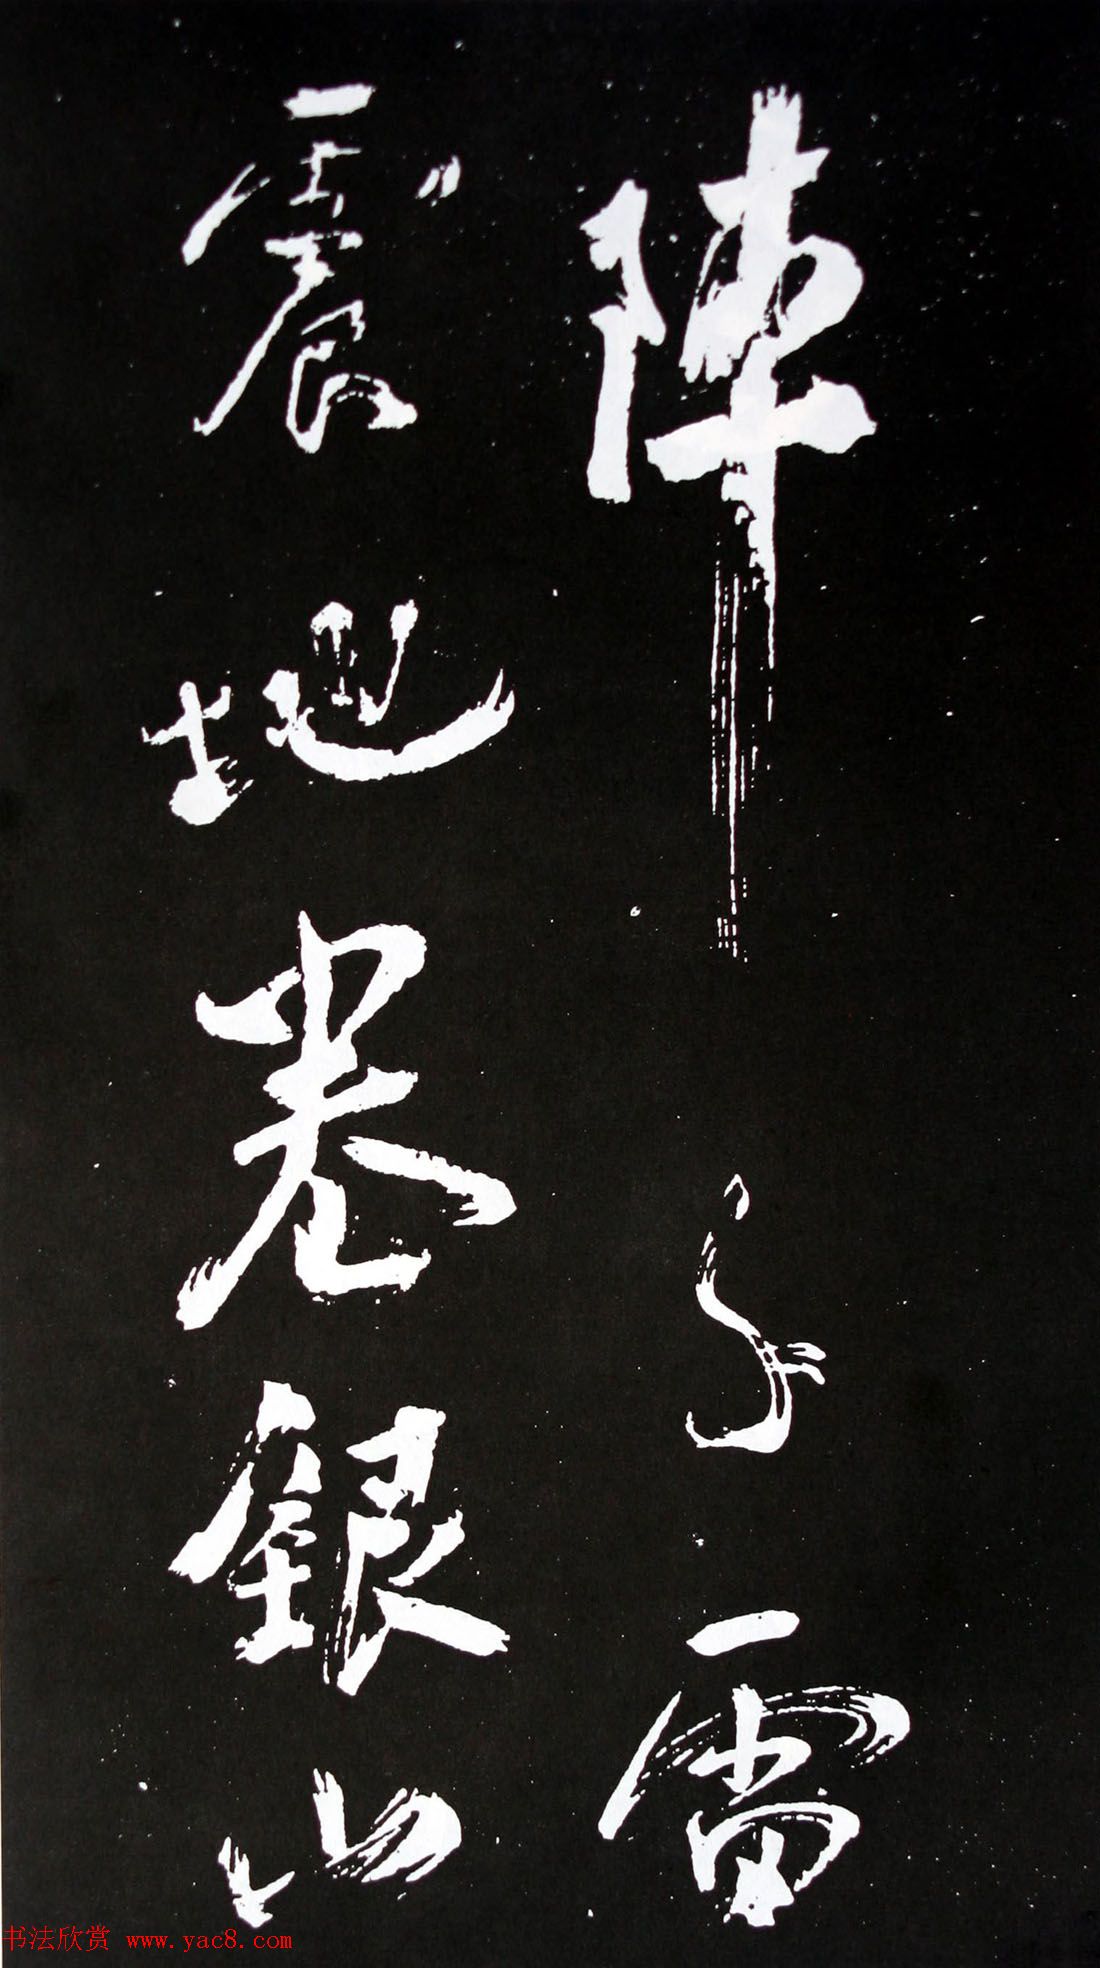 陣手雷
震地卷銀山
书法欣赏 www.yac8.com